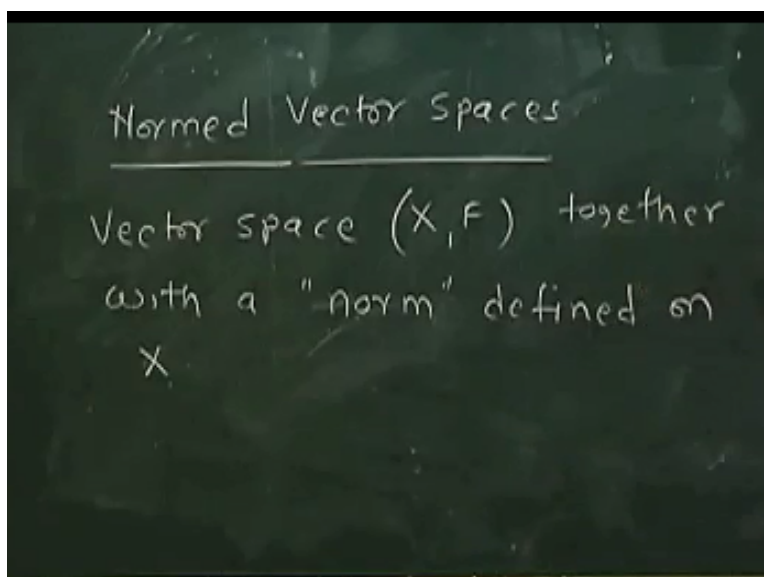 Normed Vector Spaces
Vector space (X, F) together
with a "norm" defined on
X